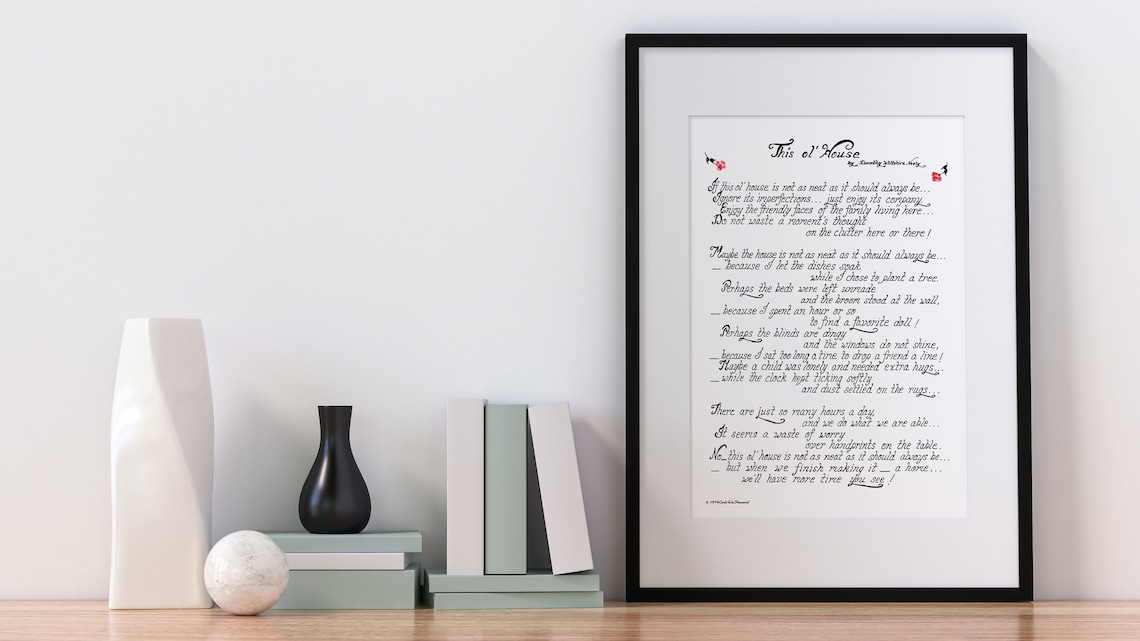 This ol' House
by Dorothy Wiltshire Neely
If this ol' house is not as neat as it should always be...
Ignore its imperfections... just enjoy its company
Enjoy the friendly faces of the family living here...
Do not waste a moment's thought
on the clutter here or there!
Maybe the house is not as neat as it should always be...
_ because I let the dishes soak
while I chose to plant a tree.
Perhaps the beds were left unmade
and the broom stood at the wall,
_ because I spent an hour or so
to find a favorite doll!
Perhaps the blinds are dingy
and the windows do not shine,
_ because I sat too long a time to drop a friend a line!
Maybe a child was lonely and needed extra hugs...
_ while the clock kept ticking softly
and dust settled on the rugs...
There are just so many hours a day,
and we do what we are able...
It seems a waste of worry
over handprints on the table.
No_ this ol' house is not as neat as it should always be...
_ but when we finish making it _ a home...
we'll have more time you see!
© 1976